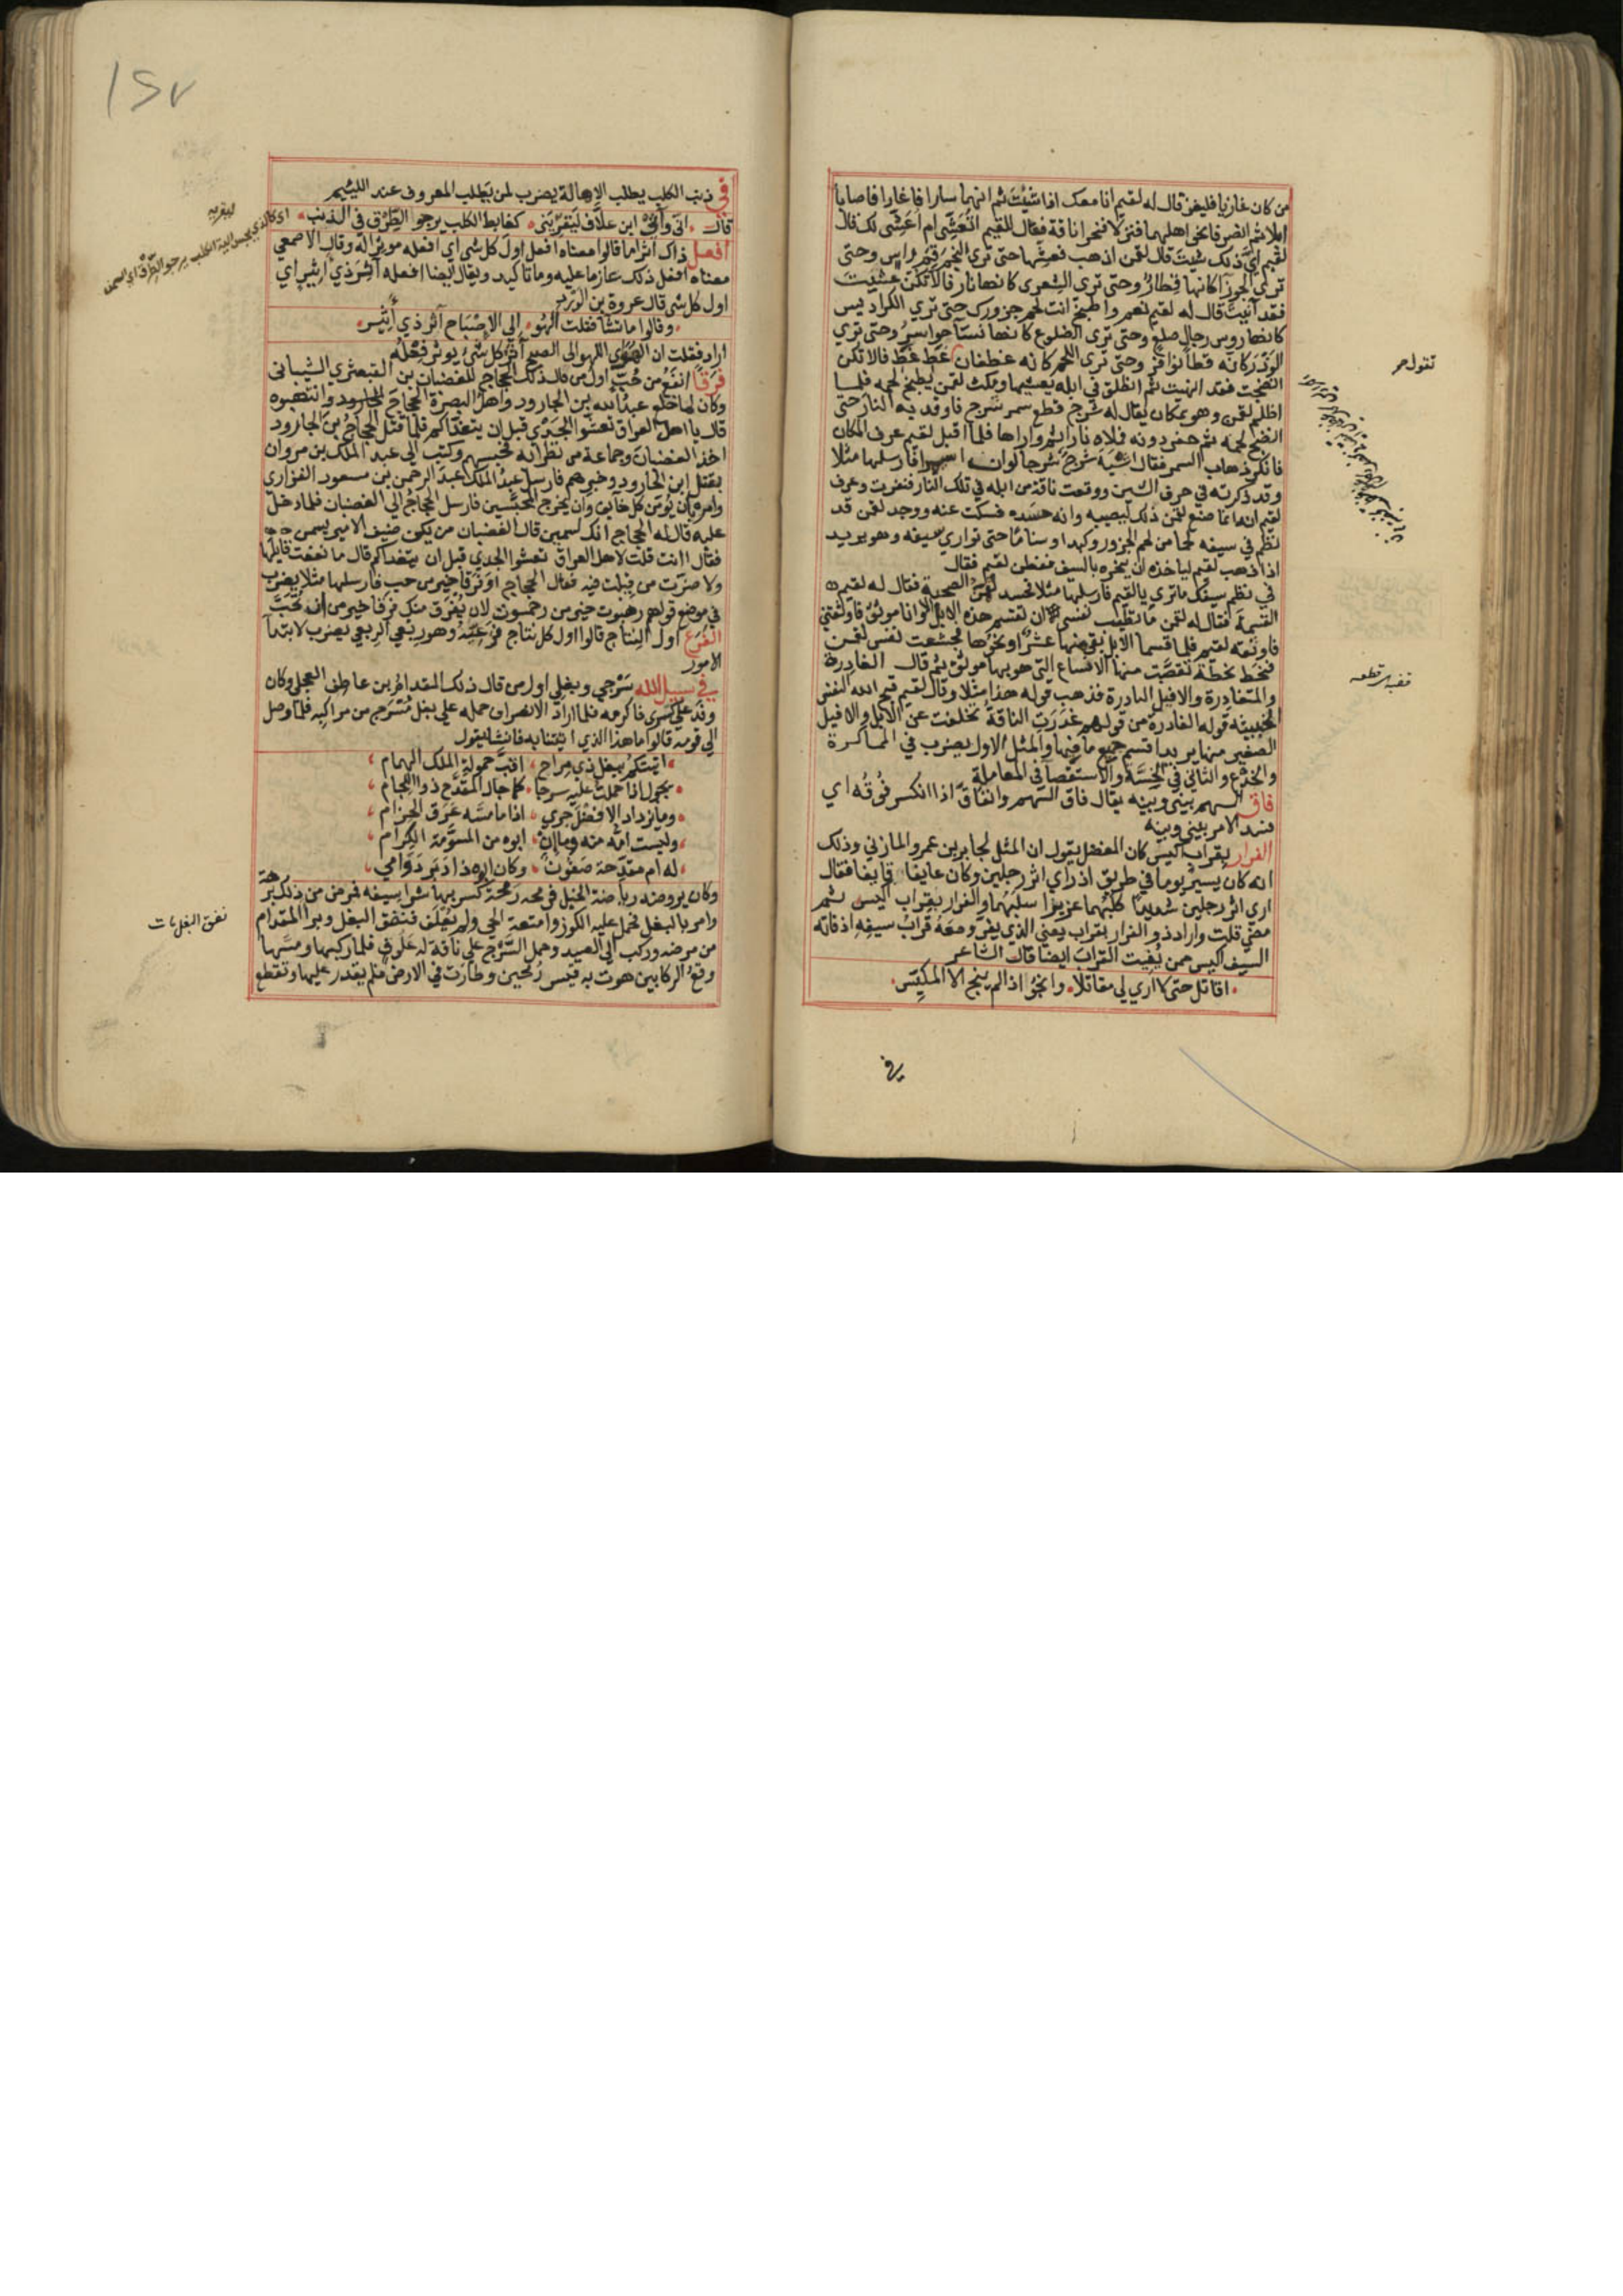 من كان غازيا فليغز قال له لقيم انا معك اذا شئت ثم انهما سارا فاغارا فاصابا
ابلا ثم انصرفا نحو اهلهما فنزلا فنحرا ناقة فقال للقيم اتعشى ام اعشى لك قال
لقيم اي ذلك شيت قال لقمن اذهب فعشها حتى ترى النجم قم راس وحتى
ترى الجوزا كانها قطار وحتى ترى الشعرى كانها نار فالا تكن عشيت
فقد آنيت قال له لقيم نعم واطبخ انت لحم جزورك حتى تري الكراديس
كانها روس رجال صلع وحتى ترى الضلوع كانها نسا حواسر وحتى تري
الوذر كانه قطا نوافر وحتى ترى اللحم كانه غطفان غط غط فالا تكن
انضجت فقد انهيت ثم انطلق في ابله يعشيها ومكث لقمن يطبخ لحمه فلما
اظلم لقمن وهو بمكان يقال له شرج قطع سمر شرج فاوقد به النار حتى
انضج لحمه ثم حفر دونه فملاه نارا ثم واراها فلما اقبل لقيم عرف المكان
فانكر ذهاب السمر فقال اشبه شرج شرجا لوان اسيمرا فارسلها مثلا
وقد ذكرته في حرف الشين ووقعت ناقة من ابله في تلك النار فنفرت وعرف
لقيم انه انما صنع لقمن ذلك ليصيبه وانه حسده فسكت عنه ووجد لقمن قد
نظم في سيفه لحما من لحم الجزور وكبدا وسناما حتى توارى سيفه وهو يريد
اذا ذهب لقيم لياخذه ان ينحره بالسيف ففطن لقيم فقال
في نظم سيفك ما ترى يا لقيم فارسلها مثلا فحسد لقمن الصحبة فقال له لقيم
القسمة فقال له لقمن ما تطيب نفسي ان تقسم هذه الابل الا وانا موثق فاوثقني
فاوثقه لقيم فلما قسما الابل بقي منها عشر او نحوها فجشعت نفس لقمن
فنحط نحطة تقضبت منها الانساع التي هو بها موثق ثم قال الغادرة
والمتغادرة والافيل النادرة فذهب قوله هذا مثلا وقال لقيم قبح الله النفس
الخبيثه قوله الغادرة من قولهم غدرت الناقة تخلفت عن الابل والافيل
الصغير منها يريد اقسم جميع ما فيها والمثل الاول يضرب في المماكرة
والخدع والثاني في الخسة والاستقصا في المعاملة
فاق السهم بيني وبينه يقال فاق السهم وانفاق اذا انكسر فوقه اي
فسد الامر بيني وبينه
الفرار بقراب اكيس كان المفضل يقول ان المثل لجابر بن عمرو المازني وذلك
انه كان يسير يوما في طريق اذ راي اثر رجلين وكان عايفا قايفا فقال
اري اثر رجلين شديدا كلبهما عزيزا سلبهما والفرار بقراب اكيس ثم
مضى قلت واراد ذو الفرار بقراب يعني الذي يفر ومعه قراب سيفه اذ فاته
السيف اكيس ممن يفيت القراب ايضا قال الشاعر
اقاتل حتى لا اري لي مقاتلا وانجو اذا لم ينج الا المكيس
في
تقول حر
تقضبت قطعه
في ذنب الكلب يطلب الاهالة يضرب لمن يطلب المعروف عند اللئيم
قال اني واتي ابن علاق ليقريني كغابط الكلب يرجو الطرق في الذنب
ليقريه
اي كالذي يجس الية الكلب يرجو الطرق اي السمن
افعل ذاك آثرا ما قالوا معناه افعل اول كل شي اي افعله موثرا له وقال الاصمعي
معناه افعل ذلك عازما عليه وما تاكيد ويقال ايضا افعله آثر ذي اثير اي
اول كل شي قال عروة بن الورد
وقالوا ما تشا فقلت الهو الى الاصباح آثر ذي اثير
اراد فقلت ان الهو اي اللهو الى الصبح آثر كل شي يوثر فعله
فرقا انفع من حب اول من قال ذلك الحجاج للغضبان بن القبعثري الشيباني
وكان لما خلع عبد الله بن الجارود واهل البصرة الحجاج وانتهبوه
قال يا اهل العراق تعشوا الجدي قبل ان يتغداكم فلما قتل الحجاج بن الجارود
اخذ الغضبان وجماعة من نظرائه فحبسهم وكتب الى عبد الملك بن مروان
بقتل ابن الجارود وخبرهم فارسل عبد الملك عبد الرحمن بن مسعود الفزاري
وامره بان يومن كل خايف وان يخرج المحبسين فارسل الحجاج الى الغضبان فلما دخل
عليه قال له الحجاج انك لسمين قال الغضبان من يكن ضيف الامير يسمن
فقال اانت قلت لاهل العراق تعشوا الجدي قبل ان يتغداكم قال ما نفعت قايلها
ولا ضرت من قيلت فيه فقال الحجاج اوفرقا خير من حب فارسلها مثلا يضرب
في موضع قولهم رهبوت خير من رحموت لان يفرق منك فرقا خير من ان تحب
الفرع اول النتاج قالوا اول كل نتاج فرعه وهو ربعي الربعي يضرب لابتدا
الامور
في سبيل الله سرجي وبغلي اول من قال ذلك المقدام بن عاطف العجلي وكان
وفد على كسرى فاكرمه فلما اراد الانصراف حمله على بغل مسرج من مراكبه فلما وصل
الى قومه قالوا ما هذا الذي اتيتنا به فانشا يقول
اتيتكم ببغل ذي مراح اقب حمولة الملك الهمام
يجول اذا حملت عليه سرجا كما جال المقدح ذو اللجام
وما يزداد الا فضل جري اذا ما مسه عرق الحزام
وليست امه منه وما ان ابوه من المسومة الكرام
له ام مقدحة صفون وكان ابوه ذا دبر دوامي
وكان يروضه رياضة الخيل فرمحه رمحة كسر بها شراسيفه فمرض من ذلك برهة
وامر بالبغل فحمل عليه الكور وامتعة الحي ولم يعلف فنفق البغل وبرا المقدام
من مرضه وركب الى الصيد وحمل السرج على ناقة له علوق فلما ركبها ومسها
وقع الركابين هوت به قيس رمحين وطارت في الارض فلم يقدر عليها وتقطع
نفق البغل مات